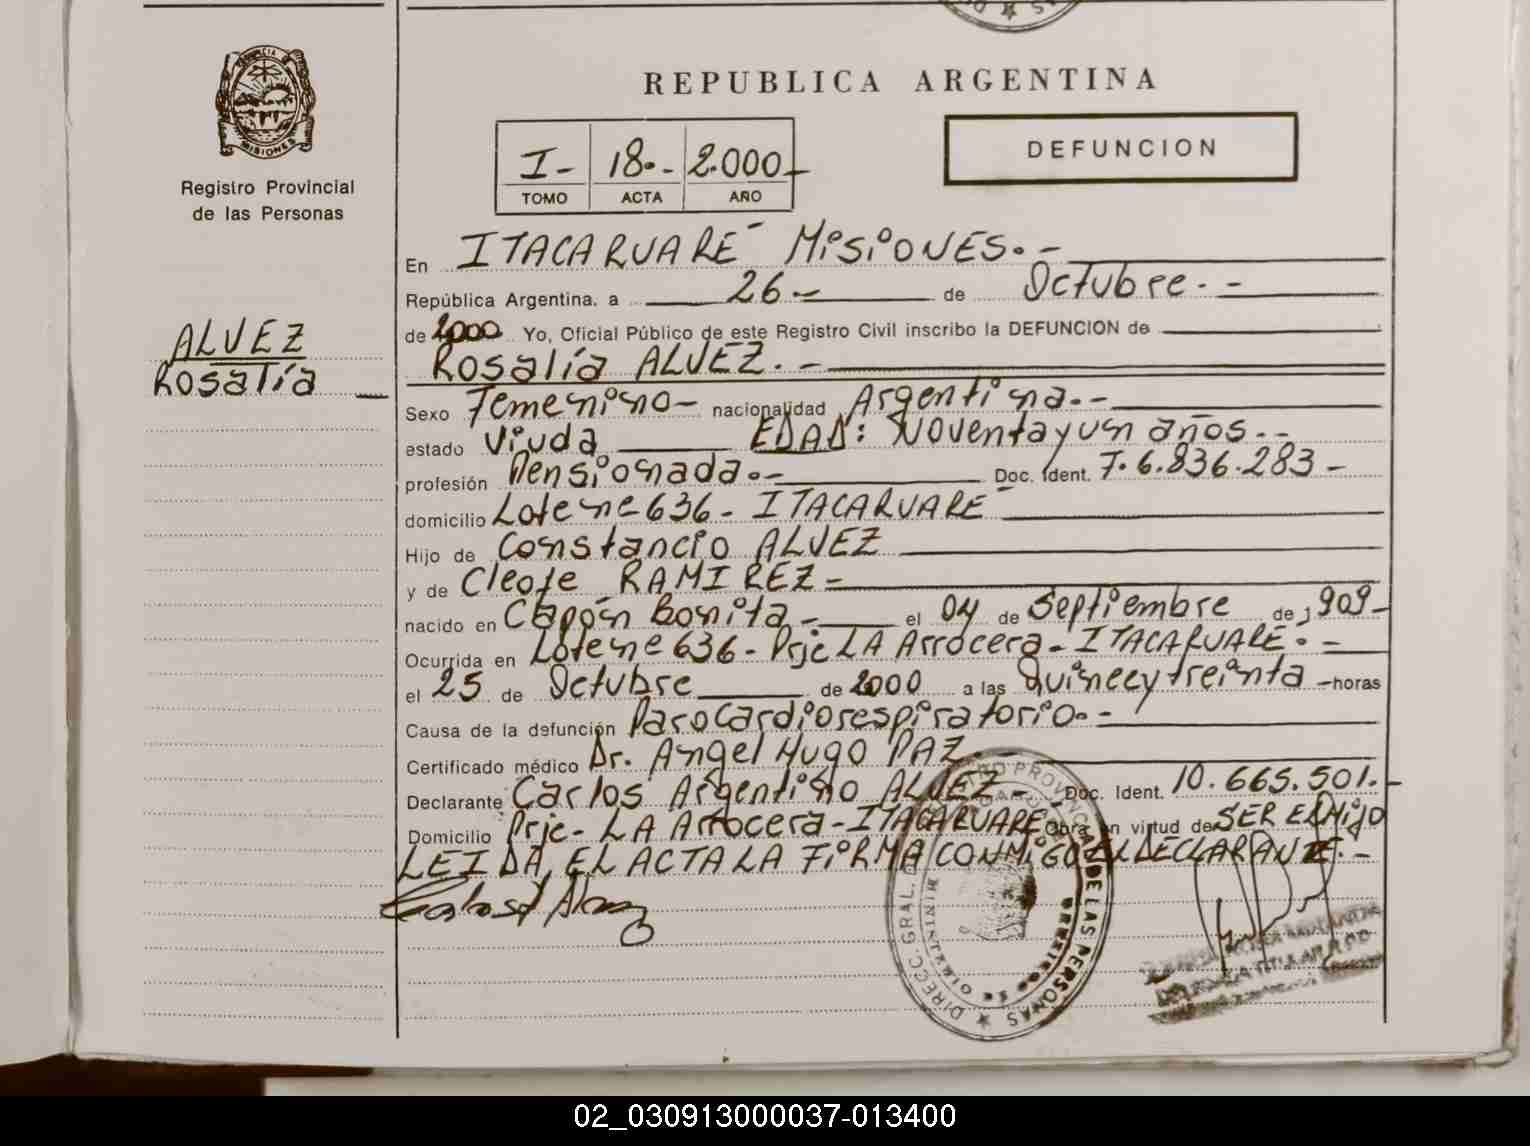 PROVINCIA DE
MISIONES
Registro Provincial
de las Personas
ALVEZ
Rosalía
REPUBLICA ARGENTINA
I- 18.- 2.000-
TOMO ACTA AÑO
DEFUNCION
En ITACARUARÉ MISIONES.-
República Argentina, a 26.- de Octubre.-
de 2000 Yo, Oficial Público de este Registro Civil inscribo la DEFUNCION de
Rosalía ALVEZ.-
Sexo Femenino- nacionalidad Argentina.-
estado Viuda EDAD: Noventa y un años.-
profesión Pensionada.- Doc. Ident. 7.6.836.283-
domicilio Lote ne 636- ITACARUARÉ
Hijo de Constancio ALVEZ
y de Cleofe RAMIREZ-
nacido en Capón Bonita- el 04 de Septiembre de 1909-
Ocurrida en Lote ne 636- Prje LA Arrocera- ITACARUARÉ.-
el 25 de Octubre de 2000 a las Quince y treinta -horas
Causa de la defunción Paro Cardiorespiratorio.-
Certificado médico Dr. Angel Hugo PAZ.
Declarante Carlos Argentino ALVEZ- Doc. Ident. 10.665.501.-
Domicilio Prje- LA Arrocera-ITACARUARÉ Obra en virtud de SER EL HIJO
LEIDA EL ACTA LA FIRMA CONMIGO EL DECLARANTE.-
DIRECC. GRAL. DE LAS PERSONAS
02_030913000037-013400